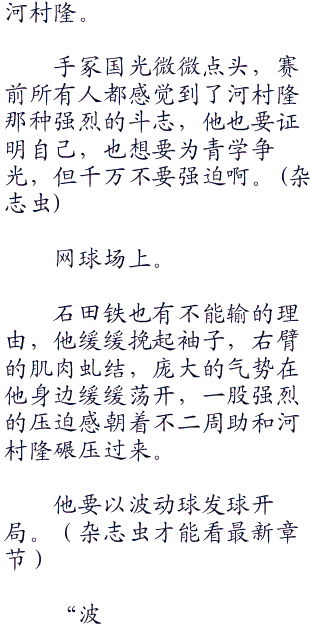 河村隆。
手冢国光微微点头，赛
前所有人都感觉到了河村隆
那种强烈的斗志，他也要证
明自己，也想要为青学争
光，但千万不要强迫啊。(杂
志虫)
网球场上。
石田铁也有不能输的理
由，他缓缓挽起袖子，右臂
的肌肉虬结，庞大的气势在
他身边缓缓荡开，一股强烈
的压迫感朝着不二周助和河
村隆碾压过来。
他要以波动球发球开
局。（杂志虫才能看最新章
节）
“波